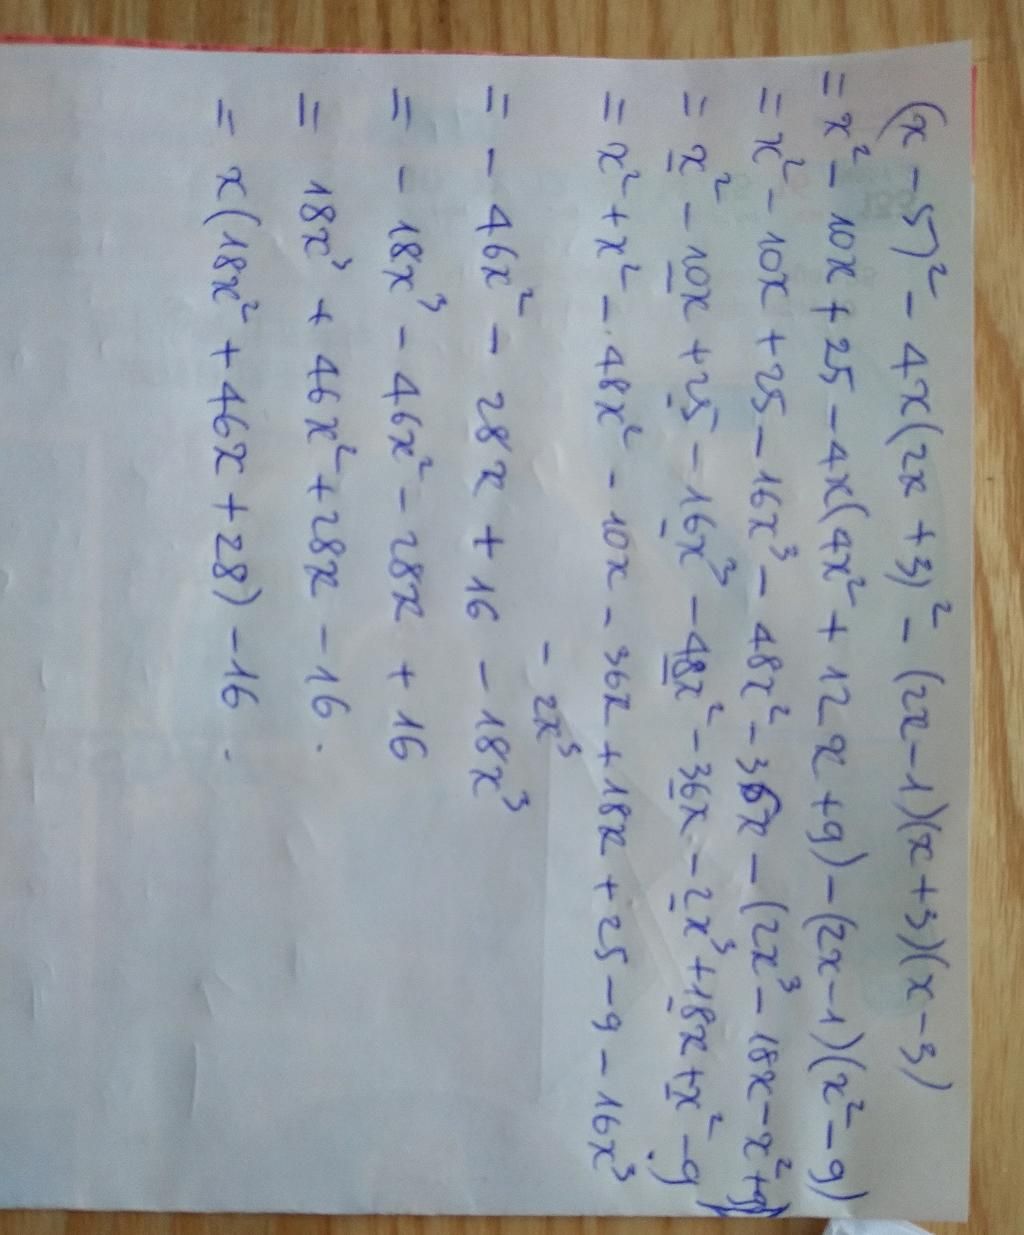 (x - 5)² - 4x(2x + 3)² - (2x - 1)(x + 3)(x - 3)
= x² - 10x + 25 - 4x(4x² + 12x + 9) - (2x - 1)(x² - 9)
= x² - 10x + 25 - 16x³ - 48x² - 36x - (2x³ - 18x - x² + 9)
= x² - 10x + 25 - 16x³ - 48x² - 36x - 2x³ + 18x + x² - 9)
= x² + x² - 48x² - 10x - 36x + 18x + 25 - 9 - 16x³
- 2x³
= - 46x² - 28x + 16 - 18x³
= - 18x³ - 46x² - 28x + 16
= 18x³ + 46x² + 28x - 16.
= x(18x² + 46x + 28) - 16.